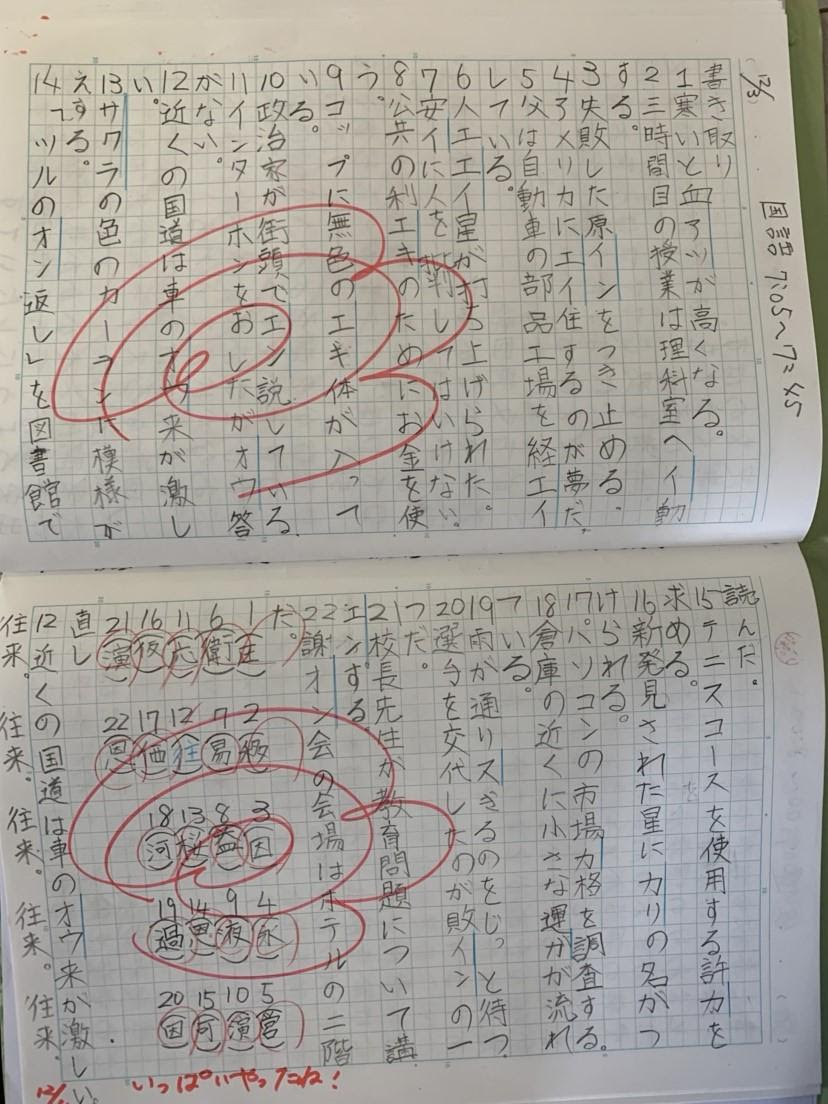 12/3
国語 7:05〜7:45
書き取り
1寒いと血アツが高くなる。
2三時間目の授業は理科室へイ動
する。
3失敗した原インをつき止める。
4アメリカにエイ住するのが夢だ。
5父は自動車の部品工場を経エイ
している。
6人工エイ星が打ち上げられた。
7安イに人を批判してはいけない。
8公共の利エキのためにお金を使
う。
9コップに無色のエキ体が入って
いる。
10政治家が街頭でエン説している。
11インターホンをおしたがオウ答
がない。
12近くの国道は車のオウ来が激し
い。
13サクラの色のカーテンに模様が
えする。
14「ツルのオン返し」を図書館で
読んだ。
15テニスコースを使用する許カを
求める。
16新発見された星にカリの名がつ
けられる。
17パソコンの市場カ格を調査する。
18倉庫の近くに小さな運ガが流れ
ている。
19雨が通りスきるのをじっと待つ。
20選手を交代したのが敗インの一
つだ。
21校長先生が教育問題について講
エンする。
22謝オン会の会場はホテルの二階
だ。
1圧 2移 3因 4永 5営
6衛 7易 8益 9液 10演
11応 12往 13桜 14恩 15可
16仮 17価 18河 19過 20因
21演 22恩
直し
12近くの国道は車のオウ来が激しい。
往来。往来。往来。往来。往来。
いっぱいやったね!